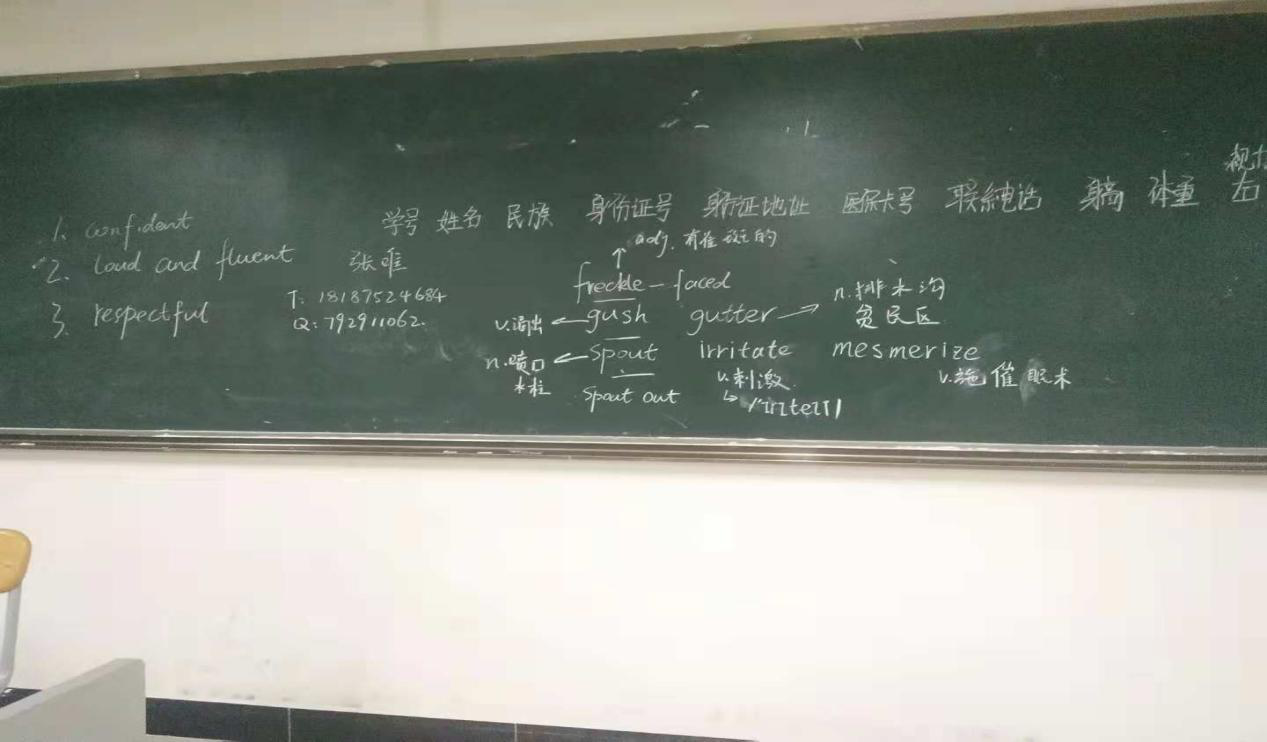 视力
学号 姓名 民族 身份证号 身份证地址 医保卡号 联系电话 身高 体重 左
1. confident
2. loud and fluent
3. respectful
张唯
T: 18187524684
Q: 792911062.
adj. 有雀斑的
freckle-faced
v. 涌出 ← gush gutter → n. 排水沟
贫民区
n. 喷口 ← spout irritate mesmerize
水柱 v. 刺激 v. 施催眠术
spout out